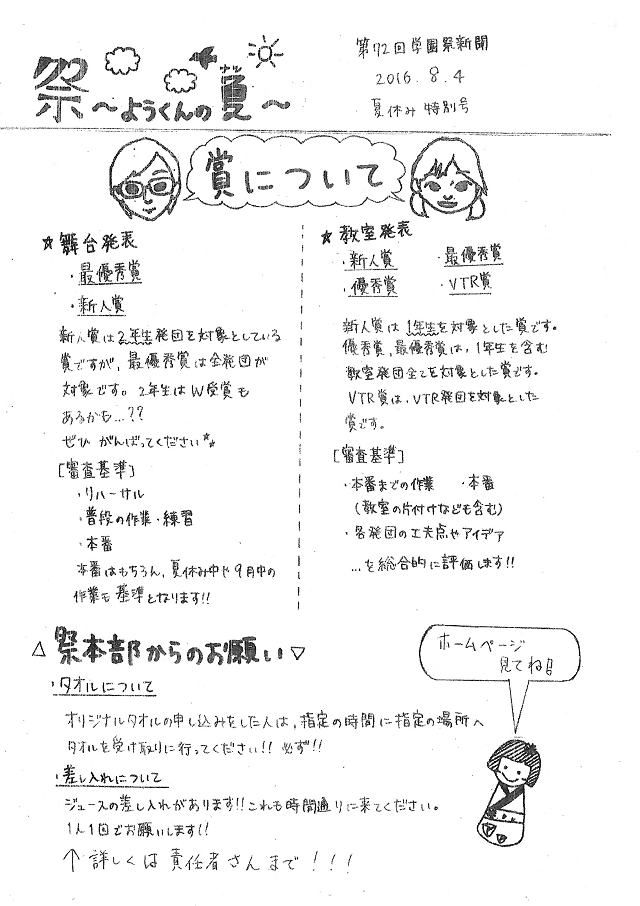 第72回学園祭新聞
2016.8.4
夏休み特別号
祭〜ようくんの夏〜
ナツ
賞について
☆舞台発表
・最優秀賞
・新人賞
新人賞は2年生発団を対象としている
賞ですが、最優秀賞は全発団が
対象です。2年生はW受賞も
あるかも…??
ぜひ がんばってください☆
[審査基準]
・リハーサル
・普段の作業・練習
・本番
本番はもちろん、夏休み中や9月中の
作業も基準となります!!
☆教室発表
・新人賞 ・最優秀賞
・優秀賞 ・VTR賞
新人賞は1年生を対象とした賞です。
優秀賞、最優秀賞は、1年生を含む
教室発団全てを対象とした賞です。
VTR賞は、VTR発団を対象とした
賞です。
[審査基準]
・本番までの作業 ・本番
(教室の片付けなども含む)
・各発団の工夫点やアイデア
…を総合的に評価します!!
△祭本部からのお願い▽
・タオルについて
オリジナルタオルの申し込みをした人は、指定の時間に指定の場所へ
タオルを受け取りに行ってください!! 必ず!!
・差し入れについて
ジュースの差し入れがあります!!これも時間通りに来てください。
1人1回でお願いします!!
↑詳しくは責任者さんまで!!!
ホームページ
見てね!!